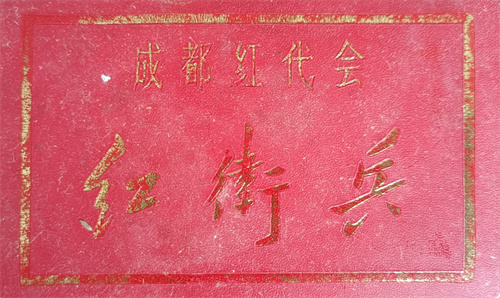 成都红代会
红衛兵